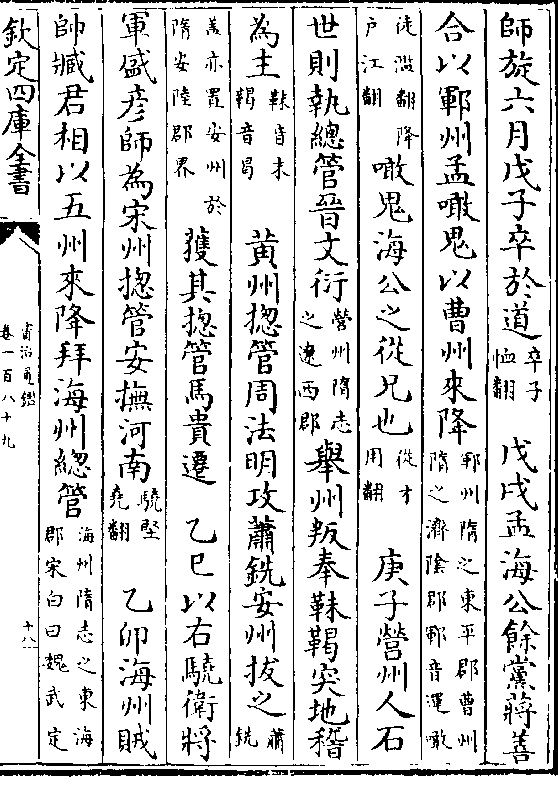 師旋六月戊子卒於道卒子恤翻戊戌孟海公餘黨蔣善
合以鄆州孟噉鬼以曹州來降鄆州隋之東平郡曹州隋之濟隂郡鄆音運噉
徒濫翻降户江翻噉鬼海公之從兄也從才用翻庚子營州人石
世則執總管晉文衍營州隋志之遼西郡舉州叛奉靺鞨突地稽
為主靺音末鞨音曷黄州揔管周法明攻蕭銑安州拔之蕭銑
葢亦置安州於隋安陸郡界獲其揔管馬貴遷乙巳以右驍衛將
軍盛彦師為宋州揔管安撫河南驍堅堯翻乙卯海州賊
帥臧君相以五州來降拜海州總管海州隋志之東海郡宋白曰魏武定
欽定四庫全書
資治通鑑
卷一百八十九
十八